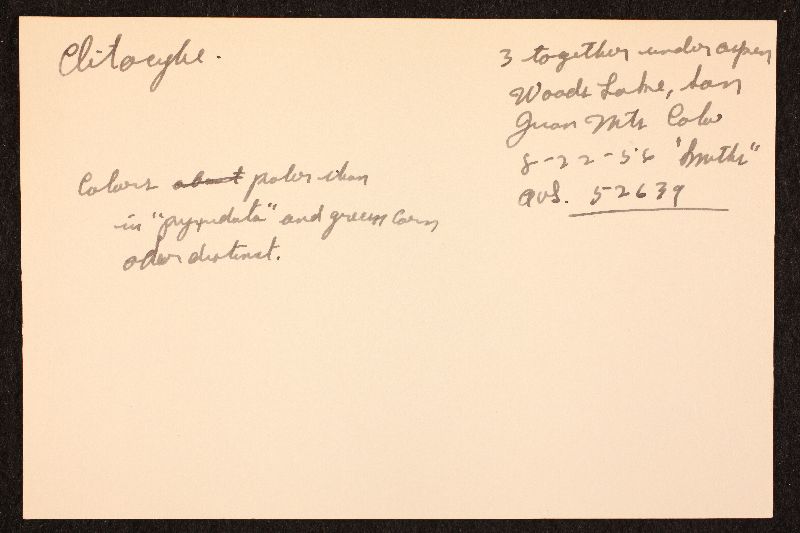 Clitocybe.
3 together under aspen
Woods Lake, San
Juan Mts Colo
8-22-56 "Smiths"
AHS. 52639
Colors about paler than
in "pyxidata" and green corn
odor distinct.